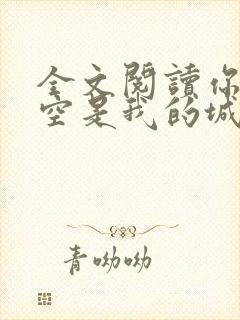 全文閱讀你
空是我的城
青呦呦